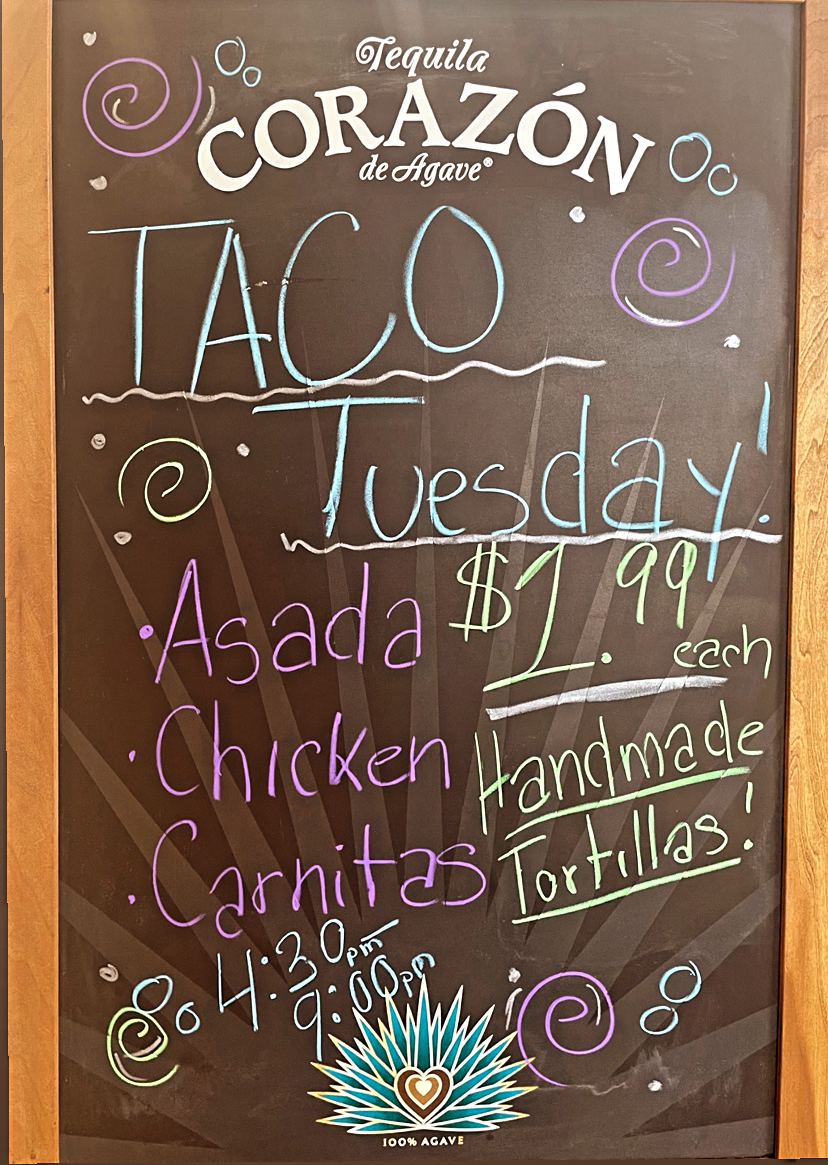 Tequila
CORAZÓN
de Agave®
TACO
Tuesday!
• Asada
$1.99
each
• Chicken
Handmade
• Carnitas
Tortillas!
4:30pm
9:00pm
100% AGAVE